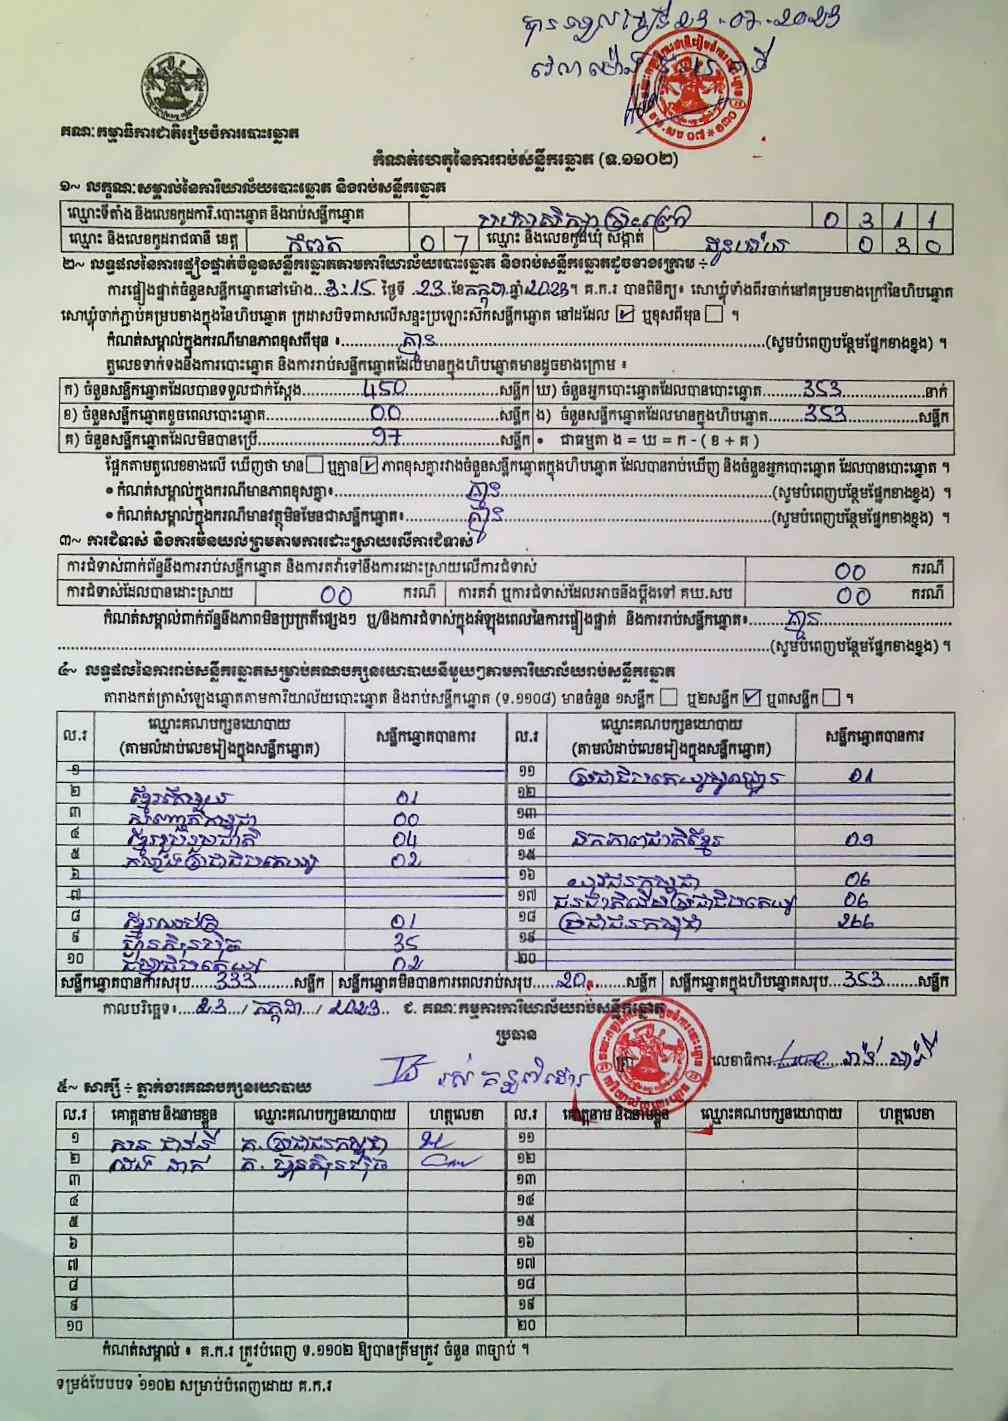 បានទទួលថ្ងៃទី 23.07.2023
វេលាម៉ោង
គណៈកម្មាធិការជាតិរៀបចំការបោះឆ្នោត
កំណត់ហេតុនៃការរាប់សន្លឹកឆ្នោត (ទ.១១០២)
១~ លក្ខណៈសម្គាល់នៃការិយាល័យបោះឆ្នោត និងរាប់សន្លឹកឆ្នោត
ឈ្មោះទីតាំង និងលេខកូដការិ.បោះឆ្នោត និងរាប់សន្លឹកឆ្នោត 0 3 1 1
ឈ្មោះ និងលេខកូដរាជធានី ខេត្ត កំពត 0 7 ឈ្មោះ និងលេខកូដឃុំ សង្កាត់ 0 3 0
២~ លទ្ធផលនៃការផ្ទៀងផ្ទាត់ចំនួនសន្លឹកឆ្នោតតាមការិយាល័យបោះឆ្នោត និងរាប់សន្លឹកឆ្នោតដូចខាងក្រោម ÷
ការផ្ទៀងផ្ទាត់ចំនួនសន្លឹកឆ្នោតនៅម៉ោង...3:15 ថ្ងៃទី 23 ខែកក្កដា ឆ្នាំ2023។ គ.ក.រ បានពិនិត្យ៖ សោឃ្លុំទាំងពីរចាក់នៅគម្របខាងក្រៅនៃហិបឆ្នោត
សោឃ្លុំចាក់ភ្ជាប់គម្របខាងក្នុងនៃហិបឆ្នោត ក្រដាសបិទពាសលើសន្ទះប្រឡោះស៊កសន្លឹកឆ្នោត នៅដដែល ☑ ឬខុសពីមុន ☐ ។
កំណត់សម្គាល់ក្នុងករណីមានភាពខុសពីមុន ៖ គ្មាន (សូមបំពេញបន្ថែមផ្នែកខាងខ្នង) ។
តួលេខទាក់ទងនឹងការបោះឆ្នោត និងការរាប់សន្លឹកឆ្នោតដែលមានក្នុងហិបឆ្នោតមានដូចខាងក្រោម ៖
ក) ចំនួនសន្លឹកឆ្នោតដែលបានទទួលជាក់ស្តែង 450 សន្លឹក ឃ) ចំនួនអ្នកបោះឆ្នោតដែលបានបោះឆ្នោត 353 នាក់
ខ) ចំនួនសន្លឹកឆ្នោតខូចពេលបោះឆ្នោត 00 សន្លឹក ង) ចំនួនសន្លឹកឆ្នោតដែលមានក្នុងហិបឆ្នោត 353 សន្លឹក
គ) ចំនួនសន្លឹកឆ្នោតដែលមិនបានប្រើ 97 សន្លឹក • ជាធម្មតា ង = ឃ = ក - ( ខ + គ )
ផ្អែកតាមតួលេខខាងលើ ឃើញថា មាន ☐ ឬគ្មាន ☑ ភាពខុសគ្នារវាងចំនួនសន្លឹកឆ្នោតក្នុងហិបឆ្នោត ដែលបានរាប់ឃើញ និងចំនួនអ្នកបោះឆ្នោត ដែលបានបោះឆ្នោត ។
• កំណត់សម្គាល់ក្នុងករណីមានភាពខុសគ្នា៖ គ្មាន (សូមបំពេញបន្ថែមផ្នែកខាងខ្នង) ។
• កំណត់សម្គាល់ក្នុងករណីមានវត្ថុមិនមែនជាសន្លឹកឆ្នោត៖ គ្មាន (សូមបំពេញបន្ថែមផ្នែកខាងខ្នង) ។
៣~ ការជំទាស់ និងការមិនយល់ព្រមតាមការដោះស្រាយលើការជំទាស់
ការជំទាស់ពាក់ព័ន្ធនឹងការរាប់សន្លឹកឆ្នោត និងការតវ៉ាទៅនឹងការដោះស្រាយលើការជំទាស់ 00 ករណី
ការជំទាស់ដែលបានដោះស្រាយ 00 ករណី ការតវ៉ា ឬការជំទាស់ដែលអាចនឹងប្តឹងទៅ គឃ.សប 00 ករណី
កំណត់សម្គាល់ពាក់ព័ន្ធនឹងភាពមិនប្រក្រតីផ្សេងៗ ឬ/និងការជំទាស់ក្នុងអំឡុងពេលនៃការផ្ទៀងផ្ទាត់ និងការរាប់សន្លឹកឆ្នោត៖ គ្មាន
(សូមបំពេញបន្ថែមផ្នែកខាងខ្នង) ។
៤~ លទ្ធផលនៃការរាប់សន្លឹកឆ្នោតសម្រាប់គណបក្សនយោបាយនីមួយៗតាមការិយាល័យរាប់សន្លឹកឆ្នោត
តារាងកត់ត្រាសំឡេងឆ្នោតតាមការិយាល័យបោះឆ្នោត និងរាប់សន្លឹកឆ្នោត (ទ.១១០៨) មានចំនួន ១សន្លឹក ☐ ឬ២សន្លឹក ☑ ឬ៣សន្លឹក ☐ ។
ល.រ ឈ្មោះគណបក្សនយោបាយ (តាមលំដាប់លេខរៀងក្នុងសន្លឹកឆ្នោត) សន្លឹកឆ្នោតបានការ ល.រ ឈ្មោះគណបក្សនយោបាយ (តាមលំដាប់លេខរៀងក្នុងសន្លឹកឆ្នោត) សន្លឹកឆ្នោតបានការ
១ ១១ 01
២ ខ្មែរតែមួយ 01 ១២
៣ 00 ១៣
៤ ខ្មែររួបរួមជាតិ 04 ១៤ ឯកភាពជាតិខ្មែរ 09
៥ កម្លាំងប្រជាធិបតេយ្យ 02 ១៥
៦ ១៦ យុវជនកម្ពុជា 06
៧ ១៧ ជនជាតិដើមប្រជាធិបតេយ្យ 06
៨ ខ្មែរឈប់ក្រ 01 ១៨ ប្រជាជនកម្ពុជា 266
៩ ហ៊្វុនស៊ិនប៉ិច 35 ១៩
១០ 02 ២០
សន្លឹកឆ្នោតបានការសរុប 333 សន្លឹក សន្លឹកឆ្នោតមិនបានការពេលរាប់សរុប 20 សន្លឹក សន្លឹកឆ្នោតក្នុងហិបឆ្នោតសរុប 353 សន្លឹក
កាលបរិច្ឆេទ៖ 23 / កក្កដា / 2023 ជ. គណៈកម្មការការិយាល័យរាប់សន្លឹកឆ្នោត
ប្រធាន
ត្រា លេខាធិការ
៥~ សាក្សី ÷ ភ្នាក់ងារគណបក្សនយោបាយ
ល.រ គោត្តនាម និងនាមខ្លួន ឈ្មោះគណបក្សនយោបាយ ហត្ថលេខា ល.រ គោត្តនាម និងនាមខ្លួន ឈ្មោះគណបក្សនយោបាយ ហត្ថលេខា
១ គ.ប្រជាជនកម្ពុជា ១១
២ គ. ហ៊្វុនស៊ិនប៉ិច ១២
៣ ១៣
៤ ១៤
៥ ១៥
៦ ១៦
៧ ១៧
៨ ១៨
៩ ១៩
១០ ២០
កំណត់សម្គាល់ ៖ គ.ក.រ ត្រូវបំពេញ ទ.១១០២ ឱ្យបានត្រឹមត្រូវ ចំនួន ៣ច្បាប់ ។
ទម្រង់បែបបទ ១១០២ សម្រាប់បំពេញដោយ គ.ក.រ